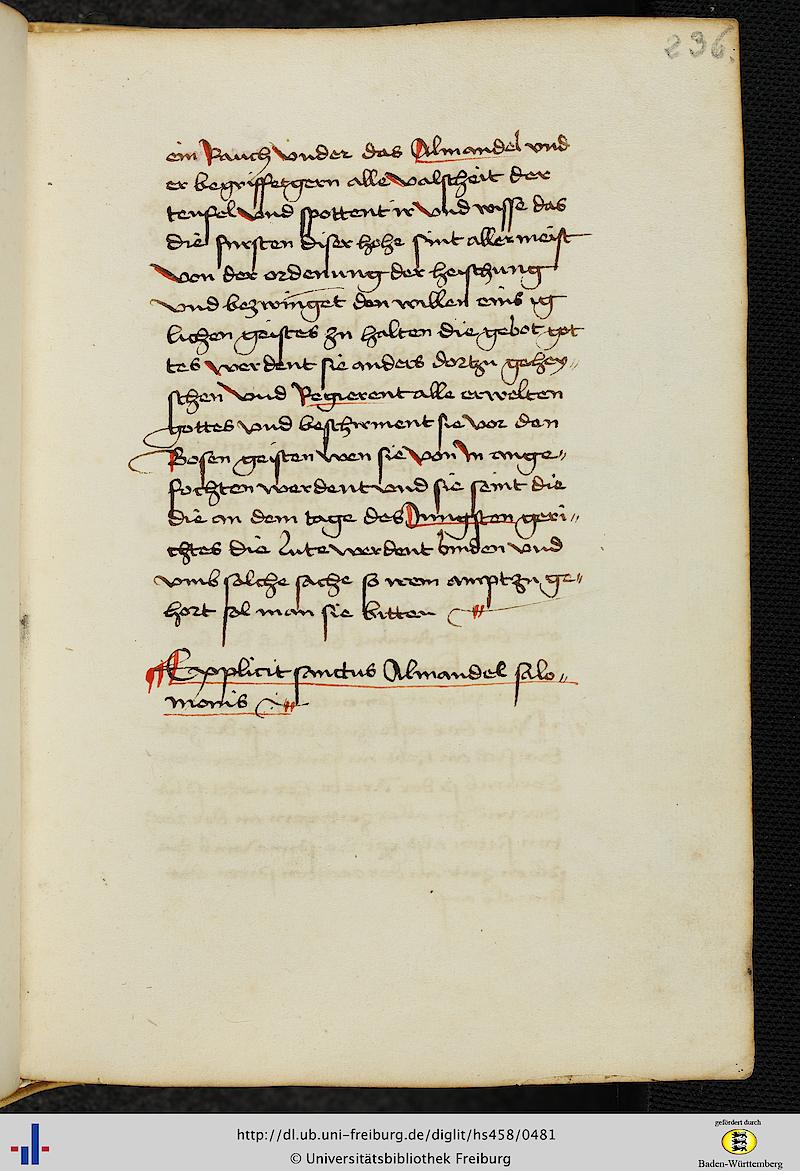 236.
ein Rauch vnder das Almandel vnd
er begriffet gern alle valscheit der
teufel vnd spottent ir vnd wisse das
die fursten diser hohe sint aller meist
von der ordenung der heischung
vnd bezwinget den willen eins ig
lichen geistes zu halten die gebot got
tes werdent sie anders dortzu gehey-
schen vnd Regierent alle erwelten
gottes vnd beschirment sie vor den
Bosen geisten wen sie von In ange-
fochten werdent vnd sie seint die
die an dem tage des Jungsten geri-
chtes die lute werdent binden vnd
vmb solche sache so irem ampt zu ge-
hort sol man sie bitten
Explicit sanctus Almandel salo-
monis
http://dl.ub.uni-freiburg.de/diglit/hs458/0481
© Universitätsbibliothek Freiburg
gefördert durch
Baden-Württemberg